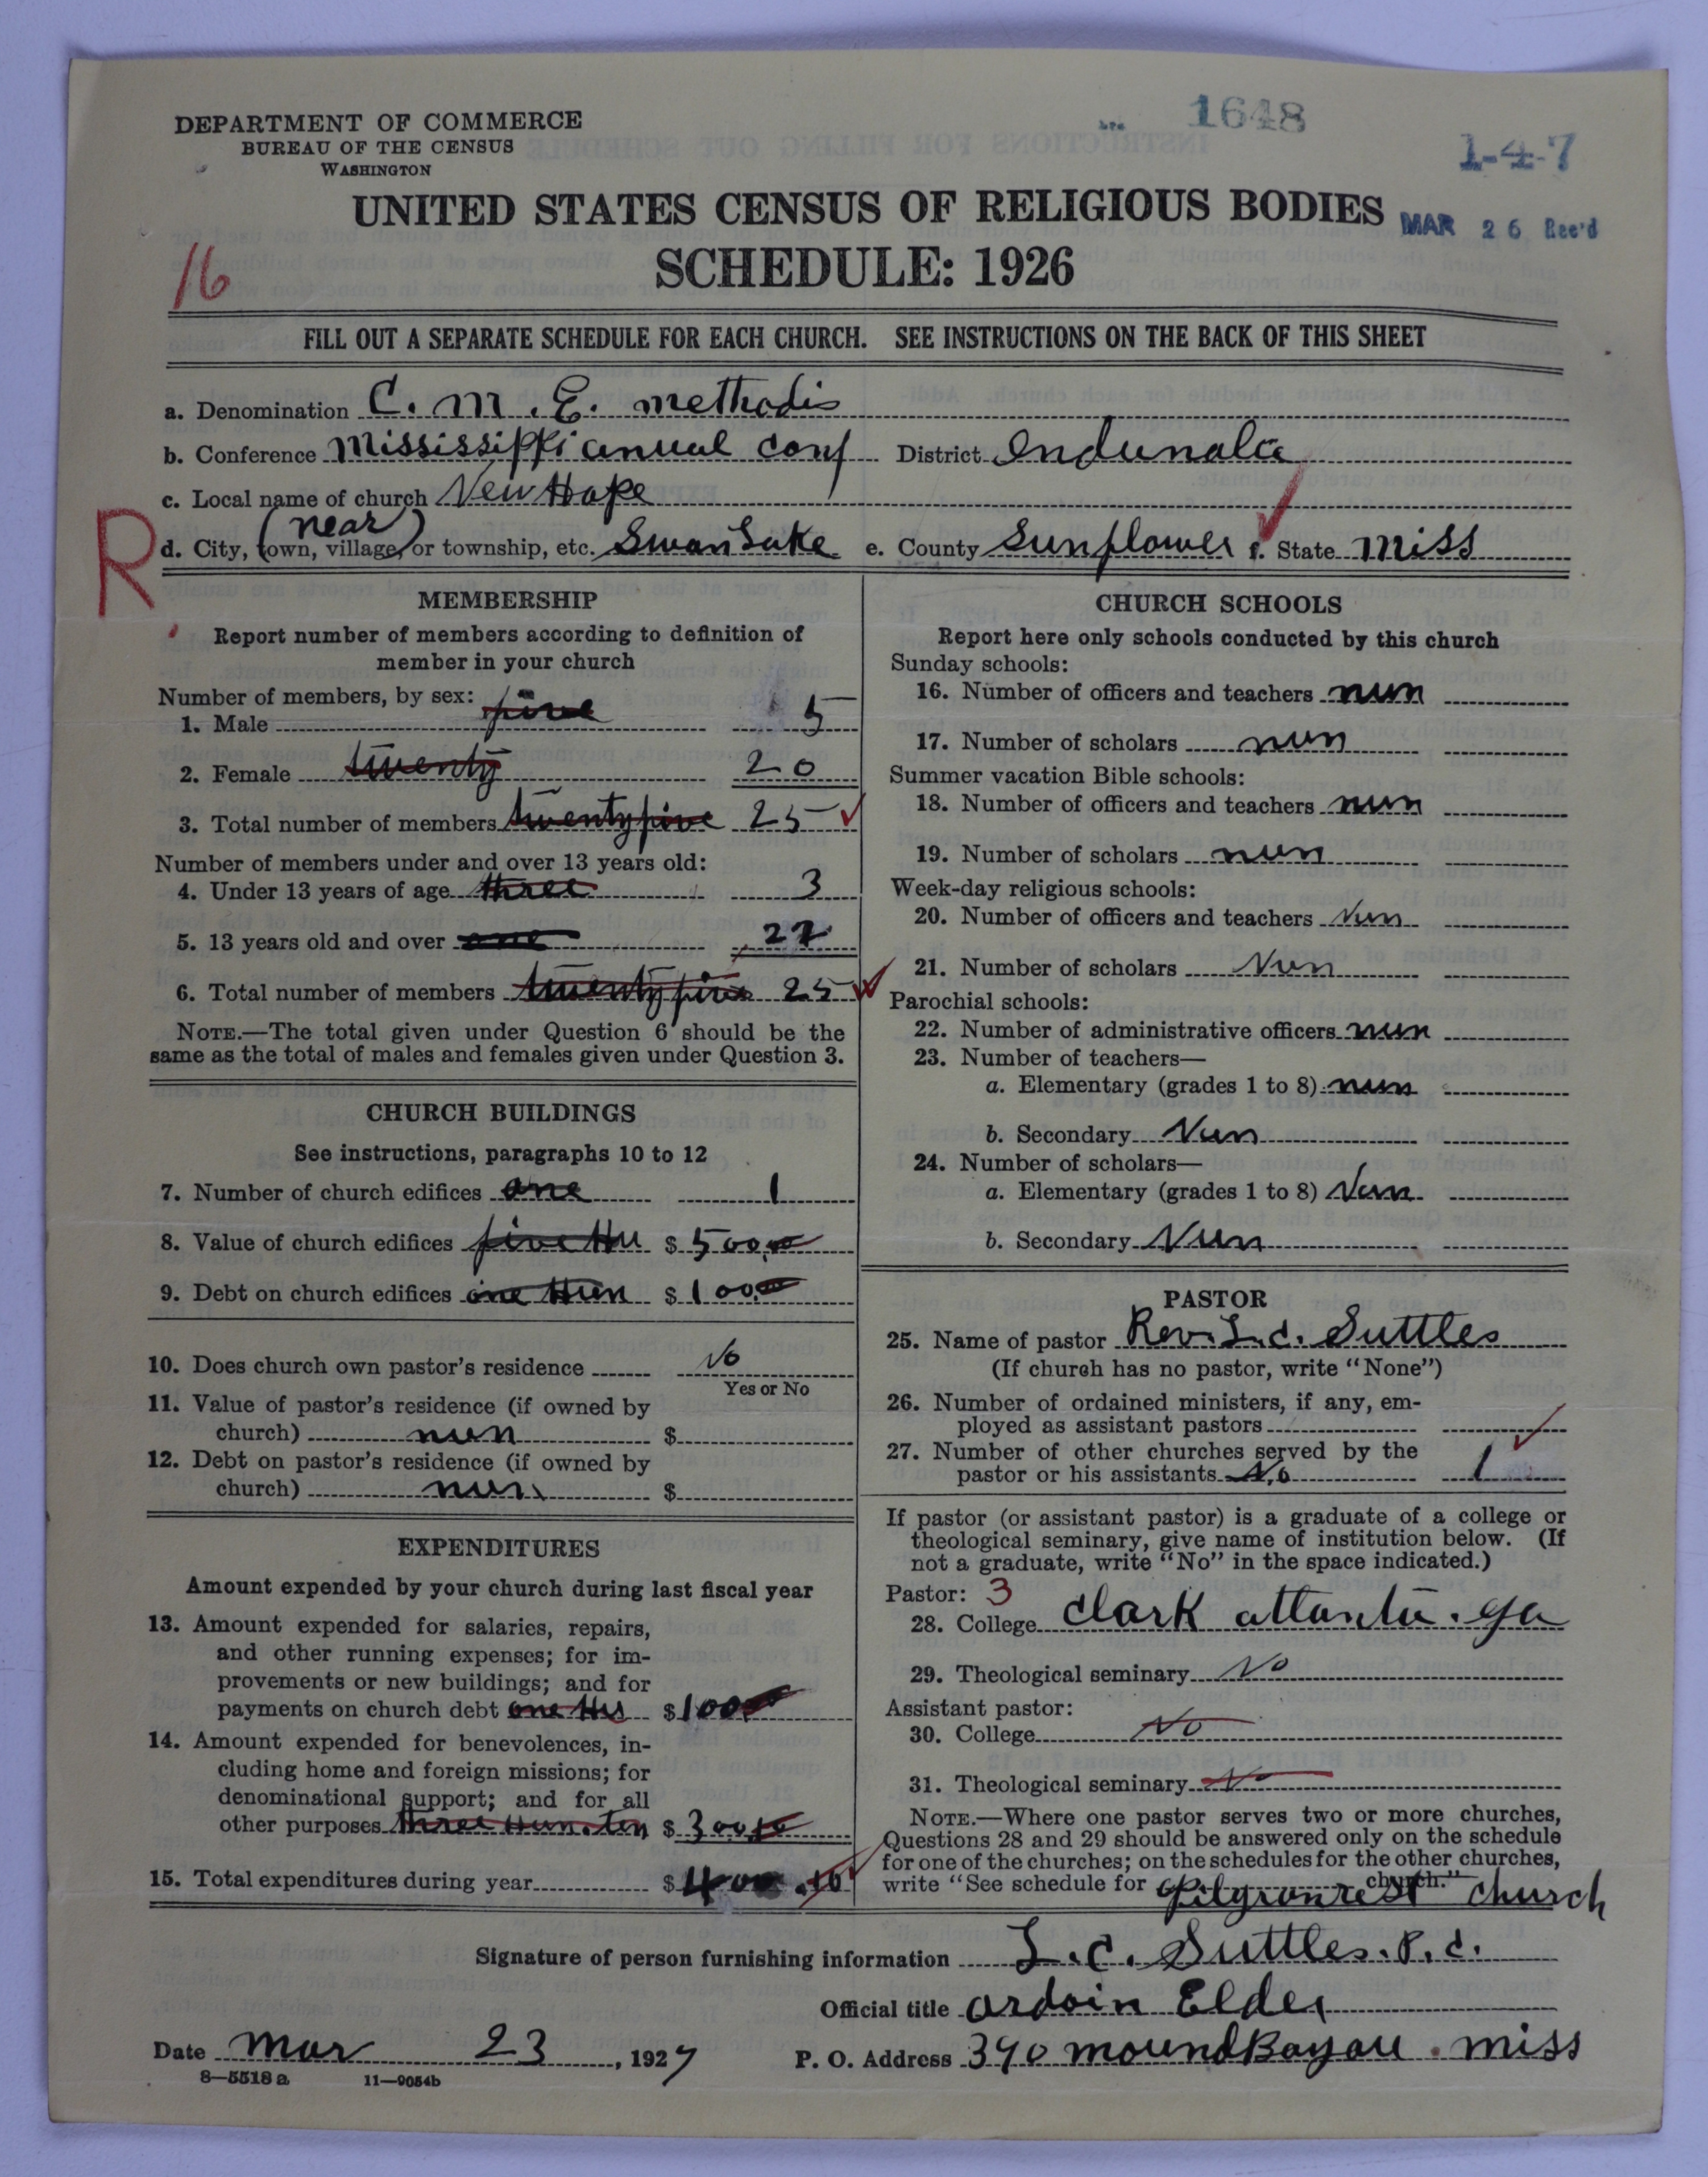 DEPARTMENT OF COMMERCE
BUREAU OF THE CENSUS
WASHINGTON
1648
1-4-7
UNITED STATES CENSUS OF RELIGIOUS BODIES
MAR 26 Rec'd
SCHEDULE: 1926
16
FILL OUT A SEPARATE SCHEDULE FOR EACH CHURCH. SEE INSTRUCTIONS ON THE BACK OF THIS SHEET
a. Denomination C. M. E. methodis
b. Conference Mississippi anual conf District Indunola
c. Local name of church New Hope
R
(near)
d. City, town, village, or township, etc. Swan Lake e. County Sunflower f. State Miss
MEMBERSHIP
Report number of members according to definition of
member in your church
Number of members, by sex:
1. Male five 5
2. Female twenty 20
3. Total number of members twenty five 25
Number of members under and over 13 years old:
4. Under 13 years of age three 3
5. 13 years old and over one 22
6. Total number of members twenty five 25
NOTE.—The total given under Question 6 should be the
same as the total of males and females given under Question 3.
CHURCH BUILDINGS
See instructions, paragraphs 10 to 12
7. Number of church edifices one 1
8. Value of church edifices five Hu $ 500.00
9. Debt on church edifices one Hun $ 100.00
10. Does church own pastor's residence No
Yes or No
11. Value of pastor's residence (if owned by
church) nun $
12. Debt on pastor's residence (if owned by
church) nun $
EXPENDITURES
Amount expended by your church during last fiscal year
13. Amount expended for salaries, repairs,
and other running expenses; for im-
provements or new buildings; and for
payments on church debt one Hu $ 100
14. Amount expended for benevolences, in-
cluding home and foreign missions; for
denominational support; and for all
other purposes three Hun. ten $ 300
15. Total expenditures during year $ 400.10
CHURCH SCHOOLS
Report here only schools conducted by this church
Sunday schools:
16. Number of officers and teachers nun
17. Number of scholars nun
Summer vacation Bible schools:
18. Number of officers and teachers nun
19. Number of scholars nun
Week-day religious schools:
20. Number of officers and teachers Nun
21. Number of scholars Nun
Parochial schools:
22. Number of administrative officers nun
23. Number of teachers—
a. Elementary (grades 1 to 8) nun
b. Secondary Nun
24. Number of scholars—
a. Elementary (grades 1 to 8) Nun
b. Secondary Nun
PASTOR
25. Name of pastor Rev. L. C. Suttles
(If church has no pastor, write "None")
26. Number of ordained ministers, if any, em-
ployed as assistant pastors
27. Number of other churches served by the
pastor or his assistants No 1
If pastor (or assistant pastor) is a graduate of a college or
theological seminary, give name of institution below. (If
not a graduate, write "No" in the space indicated.)
Pastor: 3
28. College Clark atlanta. ga
29. Theological seminary No
Assistant pastor:
30. College No
31. Theological seminary No
NOTE.—Where one pastor serves two or more churches,
Questions 28 and 29 should be answered only on the schedule
for one of the churches; on the schedules for the other churches,
write "See schedule for Pilgronrest church." church
Signature of person furnishing information L. C. Suttles. P. C.
Official title ordoin Elder
Date Mar 23, 1927 P. O. Address 390 moundBayou. miss
8—5518 a 11—9054b